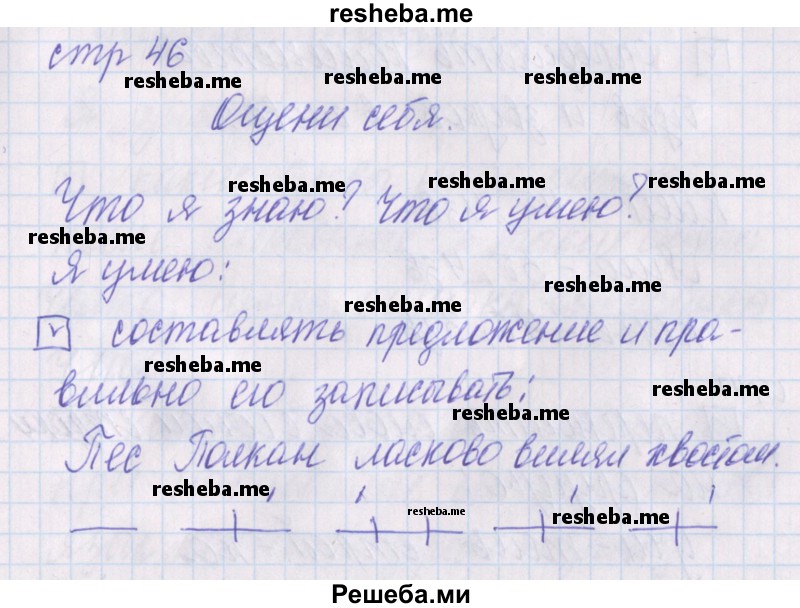 resheba.me
стр 46
resheba.me resheba.me resheba.me
Оцени себя.
resheba.me resheba.me resheba.me
Что я знаю? Что я умею?
resheba.me
Я умею:
resheba.me
resheba.me
v составлять предложение и пра-
resheba.me
resheba.me
вильно его записывать:
resheba.me
Пес Полкан ласково вилял хвостом.
resheba.me
resheba.me
resheba.me
Решеба.ми